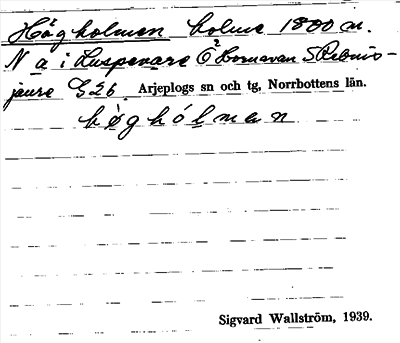 Högholmen holme 1800 m.
N a i Luspevare Ö Hornavan S Rebnis-
jaure G26. Arjeplogs sn och tg, Norrbottens län.
hö̀ghólmen
Sigvard Wallström, 1939.